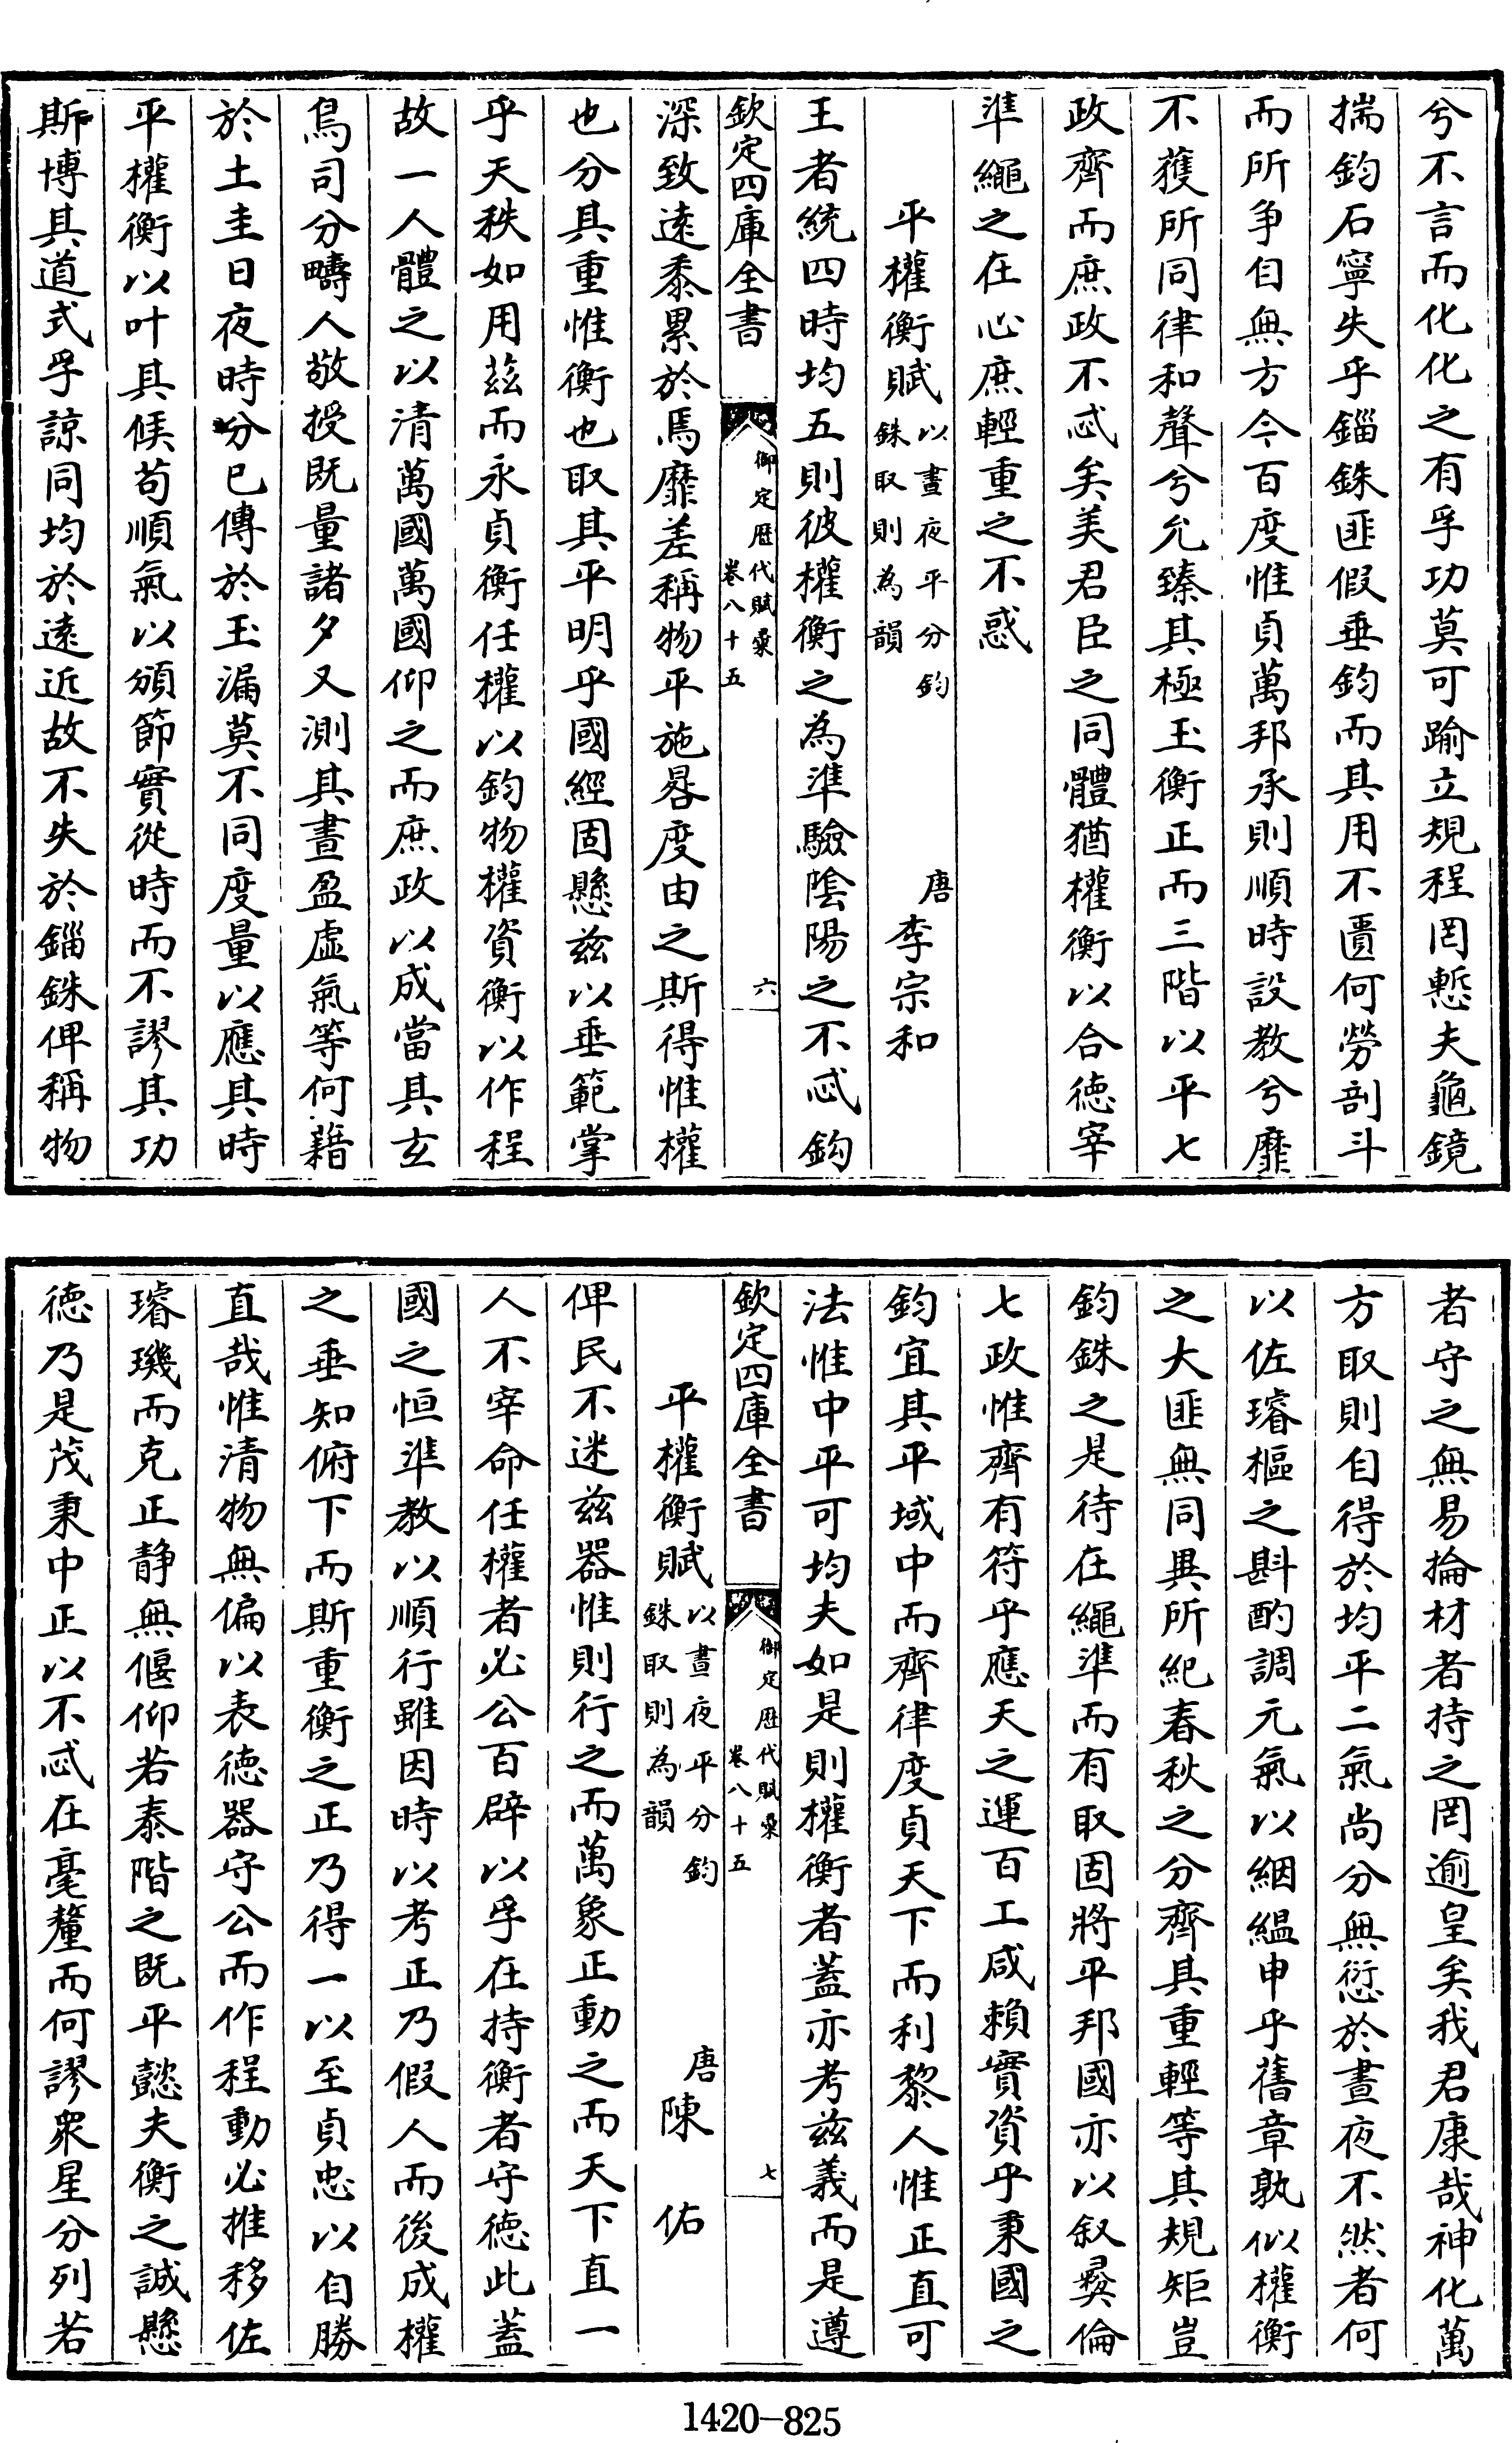 兮不言而化化之有孚功莫可踰立規程罔慙夫龜鏡
揣鈞石寧失乎錙銖匪假垂鈞而其用不匱何勞剖斗
而所爭自無方今百度惟貞萬邦承則順時設教兮靡
不獲所同律和聲兮允臻其極玉衡正而三階以平七
政齊而庶政不忒矣美君臣之同體猶權衡以合德宰
準繩之在心庶輕重之不惑
平權衡賦以晝夜平分鈞銖取則為韻 唐李宗和
王者統四時均五則彼權衡之為準驗陰陽之不忒鈎
欽定四庫全書 御定歷代賦彙 卷八十五 六
深致遠黍累於焉靡差稱物平施晷度由之斯得惟權
也分其重惟衡也取其平明乎國經固懸茲以垂範掌
乎天秩如用茲而永貞衡任權以鈞物權資衡以作程
故一人體之以清萬國萬國仰之而庶政以成當其玄
鳥司分疇人敬授既量諸夕又測其晝盈虛氣等何藉
於土圭日夜時分已傳於玉漏莫不同度量以應其時
平權衡以叶其候苟順氣以頒節實從時而不謬其功
斯博其道式孚諒同均於遠近故不失於錙銖俾稱物
者守之無易掄材者持之罔逾皇矣我君康哉神化萬
方取則自得於均平二氣尚分無愆於晝夜不然者何
以佐璿樞之斟酌調元氣以絪縕申乎舊章孰似權衡
之大匪無同異所紀春秋之分齊其重輕等其規矩豈
鈞銖之是待在繩準而有取固將平邦國亦以叙彛倫
七政惟齊有符乎應天之運百工咸賴實資乎秉國之
鈞宜其平域中而齊律度貞天下而利黎人惟正直可
法惟中平可均夫如是則權衡者蓋亦考茲義而是遵
欽定四庫全書 御定歷代賦彙 卷八十五 七
平權衡賦以晝夜平分鈞銖取則為韻 唐陳佑
俾民不迷茲器惟則行之而萬象正動之而天下直一
人不宰命任權者必公百辟以孚在持衡者守德此蓋
國之恒準教以順行雖因時以考正乃假人而後成權
之垂知俯下而斯重衡之正乃得一以至貞忠以自勝
直哉惟清物無偏以表德器守公而作程動必推移佐
璿璣而克正靜無偃仰若泰階之既平懿夫衡之誠懸
德乃是茂秉中正以不忒在毫釐而何謬衆星分列若
1420-825